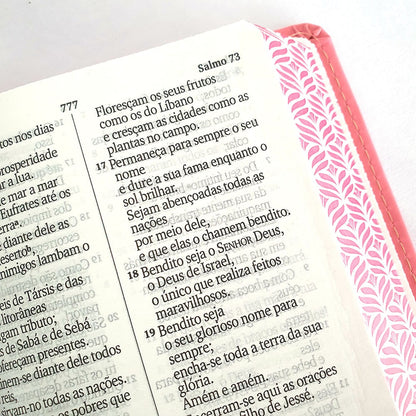 777
Salmo 73
tos nos dias
prosperidade
a lua.
mar a mar
Eufrates até os
diante dele as
deserto
inimigos lambam o
eis de Társis e das
litorâneas
gam tributo;
de Sabá e de Sebá
ofereçam presentes.
inem-se diante dele todos
as nações.
os pobres que
Floresçam os seus frutos
como os do Líbano
e cresçam as cidades como as
plantas no campo.
17 Permaneça para sempre o seu
nome
e dure a sua fama enquanto o
sol brilhar.
Sejam abençoadas todas as
nações
por meio dele,
e que elas o chamem bendito.
18 Bendito seja o SENHOR Deus,
o Deus de Israel,
o único que realiza feitos
maravilhosos.
19 Bendito seja
o seu glorioso nome para
sempre;
encha-se toda a terra da sua
glória.
Amém e amém.
Encerram-se aqui as orações
filho de Jessé.